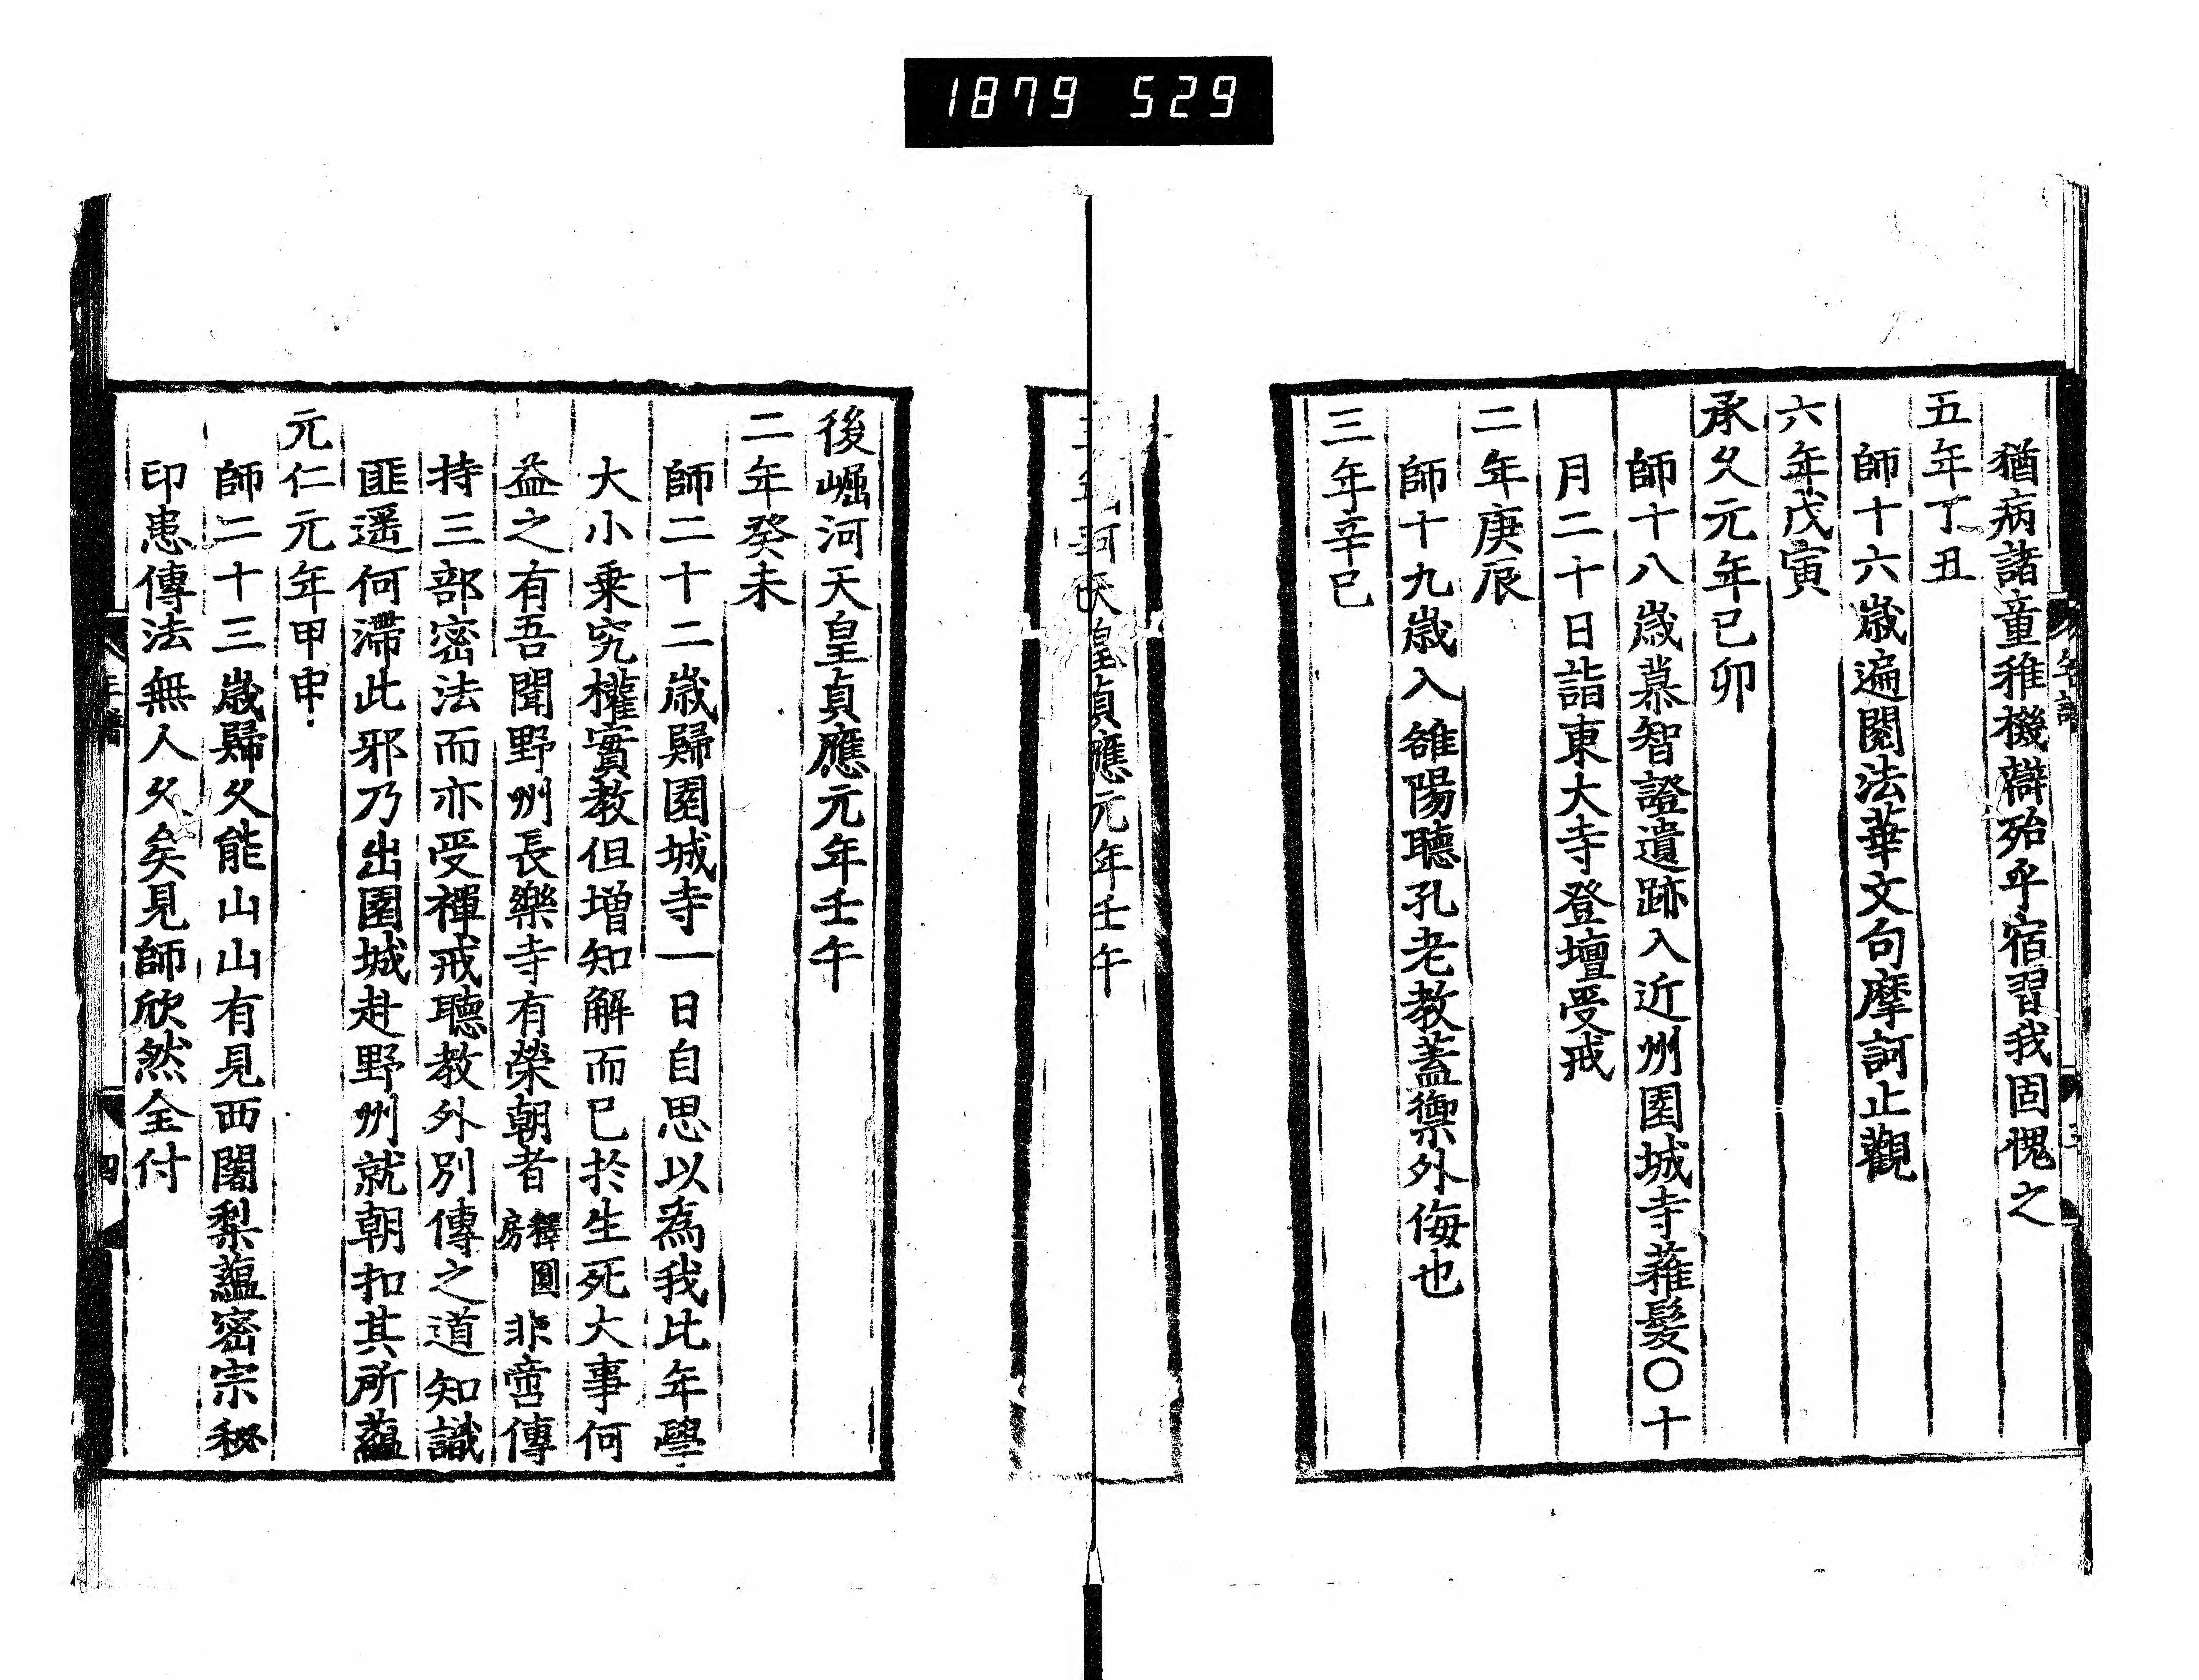 1879 529
猶病諸童稚機辯殆乎宿習我固愧之
五年丁丑
師十六歳遍閱法華文句摩訶止觀
六年戊寅
承久元年己卯
師十八歳慕智證遺跡入近州園城寺薙髮〇十
月二十日詣東大寺登壇受戒
二年庚辰
師十九歳入雒陽聽孔老教蓋禦外侮也
三年辛巳
後崛河天皇貞應元年壬午
二年癸未
師二十二歳歸園城寺一日自思以為我比年學
大小乗究權實教但增知解而已於生死大事何
益之有吾聞野州長樂寺有榮朝者釋圓房非啻傳
持三部密法而亦受禪戒聽教外別傳之道知識
匪遥何滯此邪乃出園城赴野州就朝扣其所蘊
元仁元年甲申
師二十三歳歸久能山山有見西闍梨蘊密宗秘
印患傳法無人久矣見師欣然全付
年譜
四